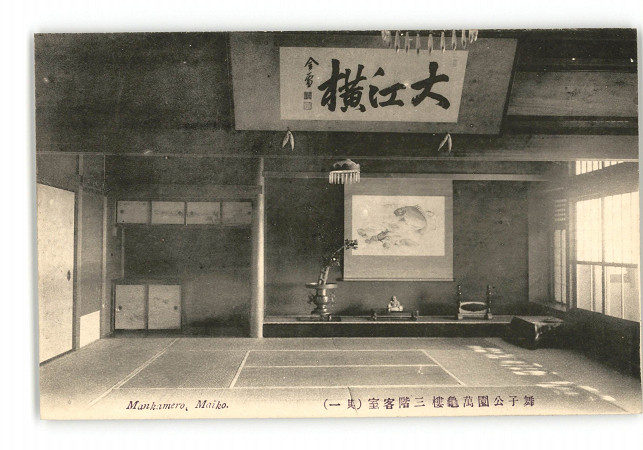 大江橫
Mankamero, Maiko.
舞子公園萬龜樓三階客室(其一)